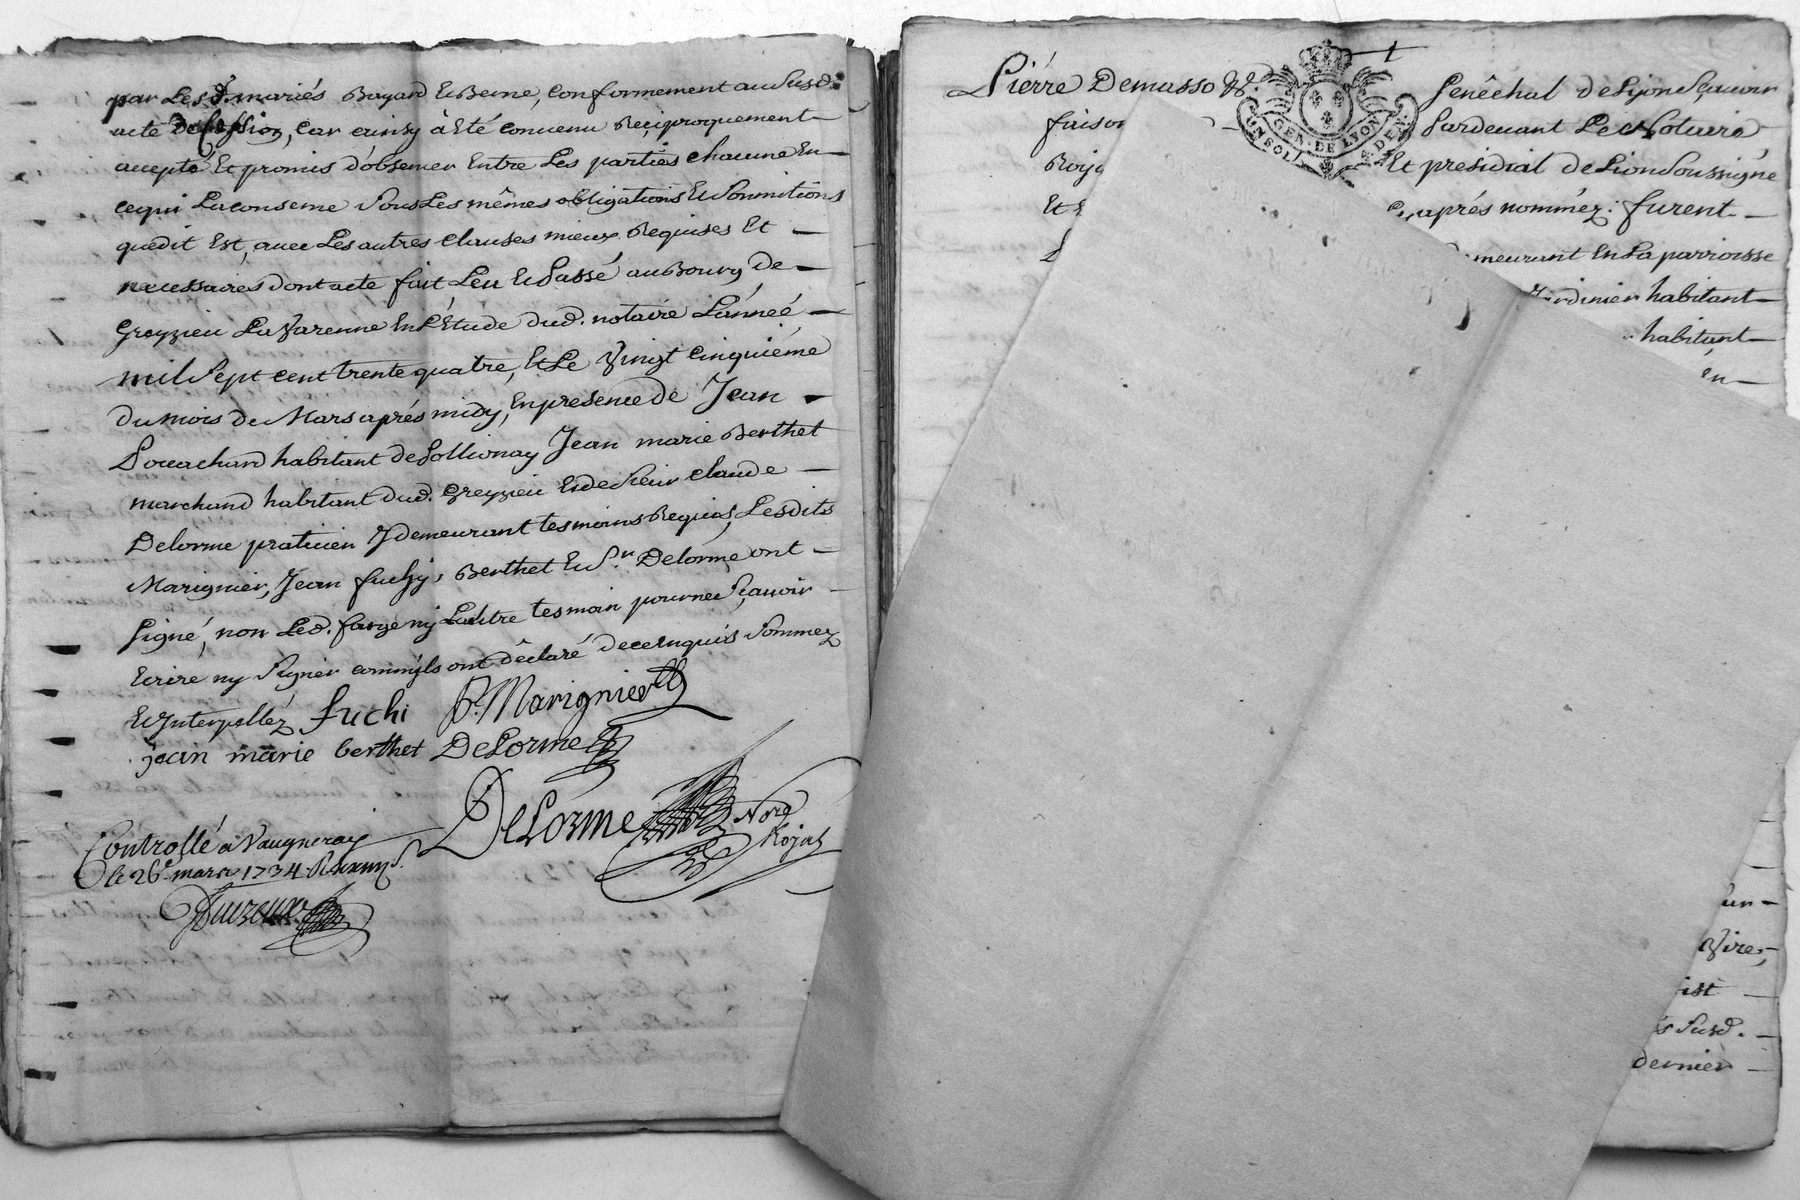 par Les d. mariés Bayard Et Berne, Conformement au Susd.
acte De Cession, Car ainsy à Eté Convenu Reciproquement
accepté Et promis d'observer Entre Les parties chacune En
cequi La conserne Sous Les mêmes obligations Et Soumitions
que dit Est, avec Les autres clauses mieux Requises Et
necessaires dont acte fait Leu Et Passé au Bourg De
Greyzieu La Varenne En L'Etude dud. notaire L'année
mil Sept cent trente quatre, Et Le Vingt Cinquiéme
du mois de Mars aprés midy, En presence de Jean
habitant de Pollionay Jean marie Berthet
marchand habitant dud. Greyzieu Et de Sieur Claude
Delorme praticien Y demeurant tesmoins Requis, Les dits
Marignier, Jean fuchy, Berthet Et Sr. Delorme ont
Signé, non Led. farge ny L'autre tesmoin pour ne Sçavoir
Ecrire ny Signer comm'ils ont dêclaré de ce Enquis Sommez
Et Interpellez fuchi P. Marignier
jean marie berthet DeLorme
DeLorme Nore Royal
Controllé a Vaugneray
le 26e mars 1734
Pierre Demasso &.
Senêchal de Lyon Sçavoir
faison
Pardevant Le Notaire
Roya
Et presidial de Lion Soussigné
Et
aprés nommez: furent
meurant En La parroisse
Jardinier habitant
habitant
En
un
Vire,
ist
Susd.
dernier
GEN. DE LYON